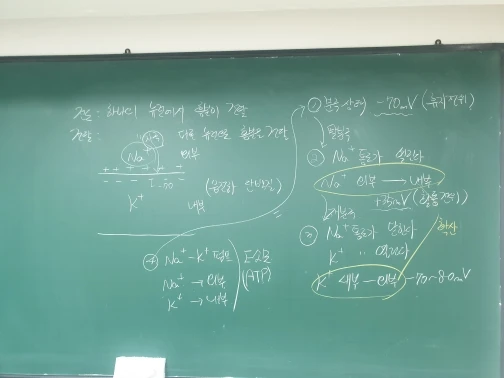 전도 : 하나의 뉴런에서 흥분이 전달
전달 : 다른 뉴런으로 흥분을 전달
자극
Na⁺ 외부
++ +++ ++
- - - - - -
K⁺ 내부
(음전하 단백질)
④ Na⁺-K⁺ 펌프
Na⁺ → 외부
K⁺ → 내부
E소모
(ATP)
① 분극상태 -70mV (휴지전위)
↓ 탈분극
② Na⁺ 통로가 열린다
Na⁺ 외부 → 내부
+35mV (활동전위)
↓ 재분극
③ Na⁺ 통로가 닫힌다
K⁺ 〃 열린다
K⁺ 내부 → 외부 -70~80mV
확산